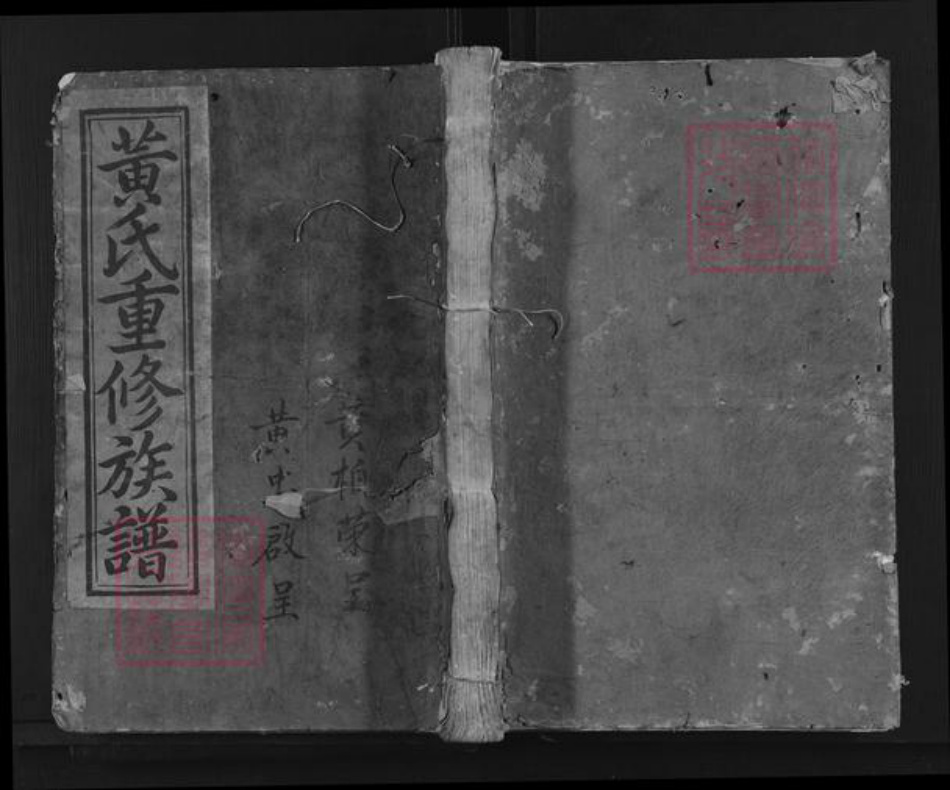 黃氏重修族譜
黃柏榮呈
黃忠啟呈